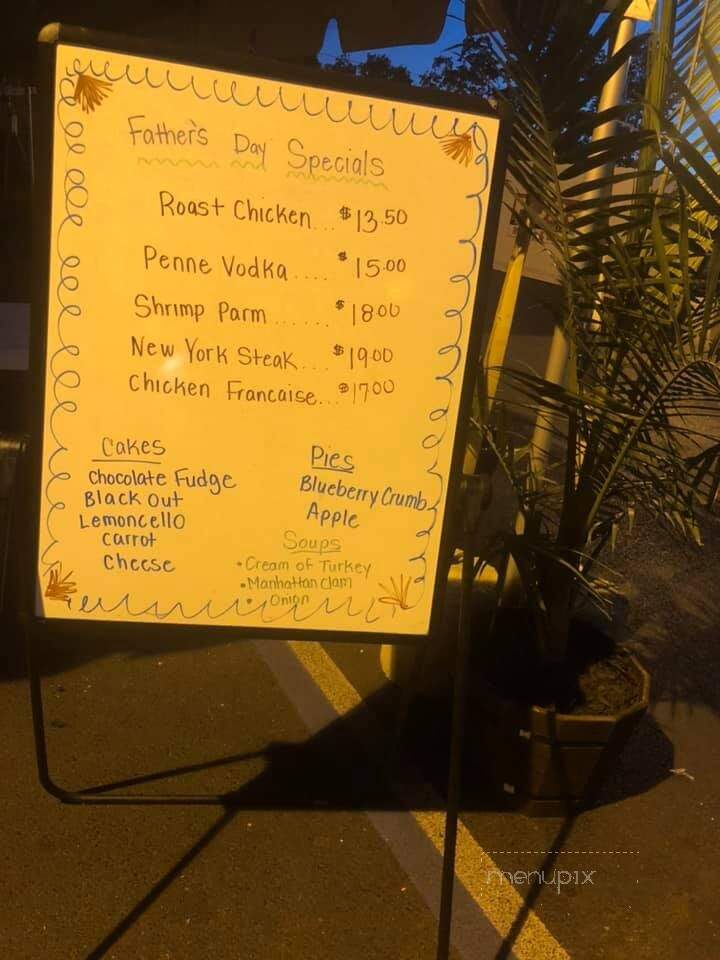 Father's Day Specials
Roast Chicken... $13.50
Penne Vodka.... $15.00
Shrimp Parm...... $18.00
New York Steak... $19.00
Chicken Francaise... $17.00
Cakes
Chocolate Fudge
Black Out
Lemoncello
Carrot
Cheese
Pies
Blueberry Crumb
Apple
Soups
• Cream of Turkey
• Manhattan Clam
• Onion
menupix